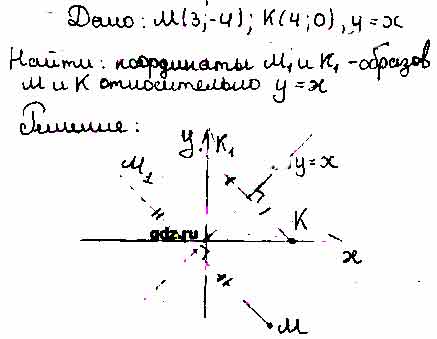 Дано: М(3;-4); К(4;0), y=x
Найти: координаты М₁ и К₁ - образов
М и К относительно y=x
Решение:
y K₁
y=x
M₁
gdz.ru
K
x
M